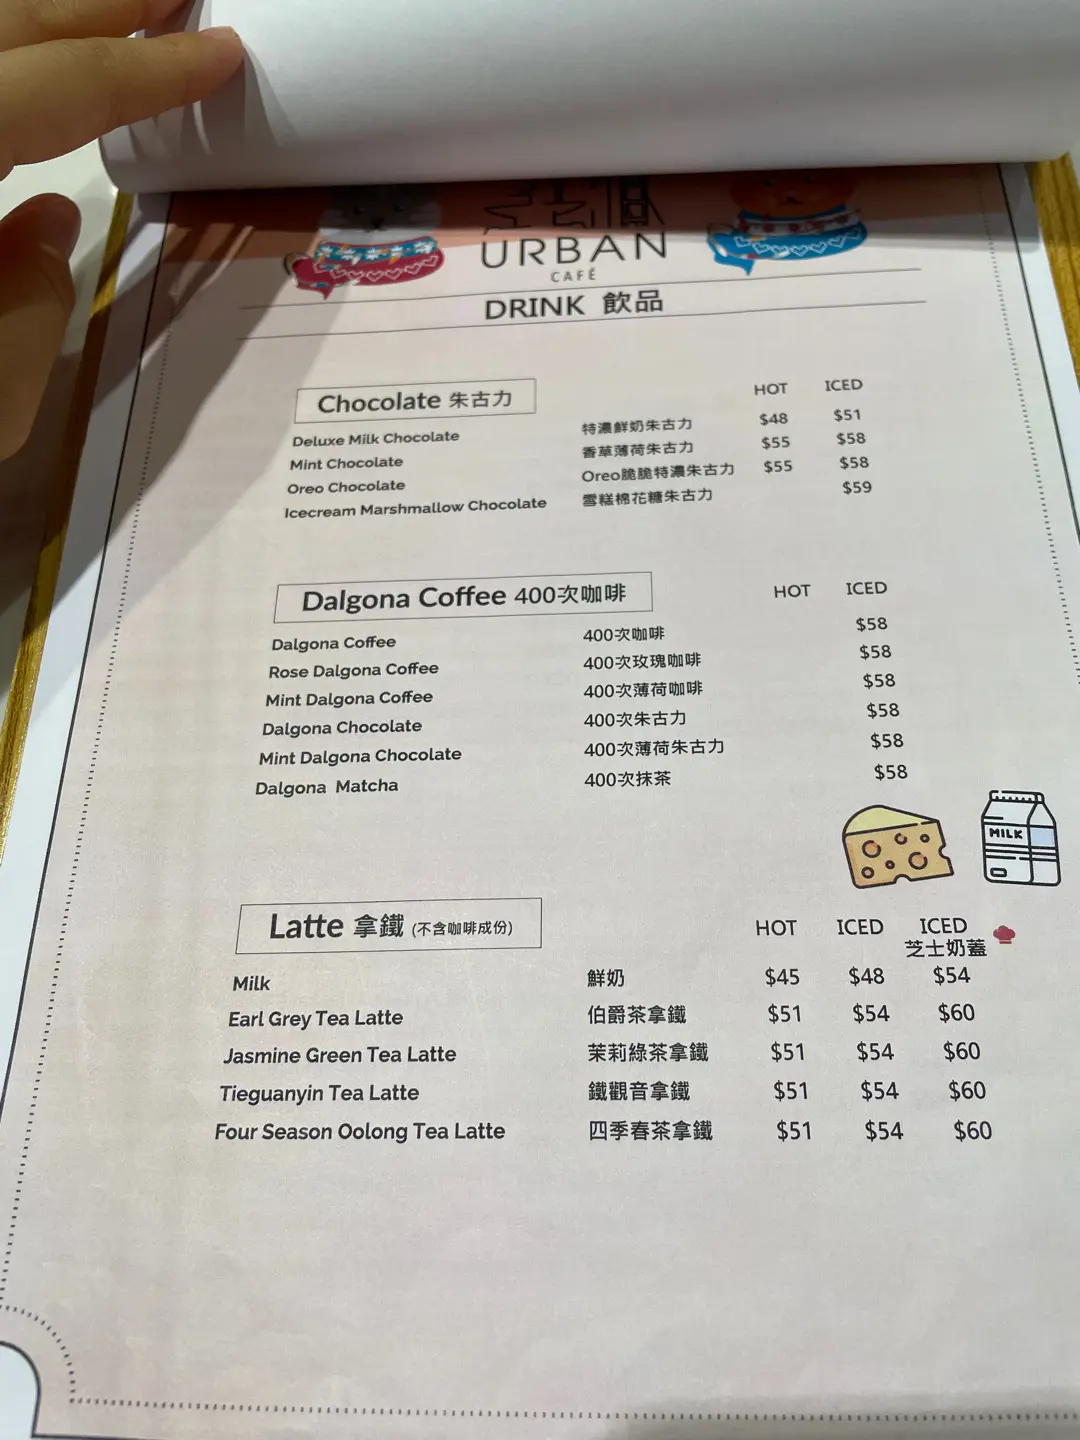 URBAN
CAFÉ
DRINK 飲品
Chocolate 朱古力 HOT ICED
Deluxe Milk Chocolate 特濃鮮奶朱古力 $48 $51
Mint Chocolate 香草薄荷朱古力 $55 $58
Oreo Chocolate Oreo脆脆特濃朱古力 $55 $58
Icecream Marshmallow Chocolate 雪糕棉花糖朱古力 $59
Dalgona Coffee 400次咖啡 HOT ICED
Dalgona Coffee 400次咖啡 $58
Rose Dalgona Coffee 400次玫瑰咖啡 $58
Mint Dalgona Coffee 400次薄荷咖啡 $58
Dalgona Chocolate 400次朱古力 $58
Mint Dalgona Chocolate 400次薄荷朱古力 $58
Dalgona Matcha 400次抹茶 $58
MILK
Latte 拿鐵 (不含咖啡成份) HOT ICED ICED
芝士奶蓋
Milk 鮮奶 $45 $48 $54
Earl Grey Tea Latte 伯爵茶拿鐵 $51 $54 $60
Jasmine Green Tea Latte 茉莉綠茶拿鐵 $51 $54 $60
Tieguanyin Tea Latte 鐵觀音拿鐵 $51 $54 $60
Four Season Oolong Tea Latte 四季春茶拿鐵 $51 $54 $60